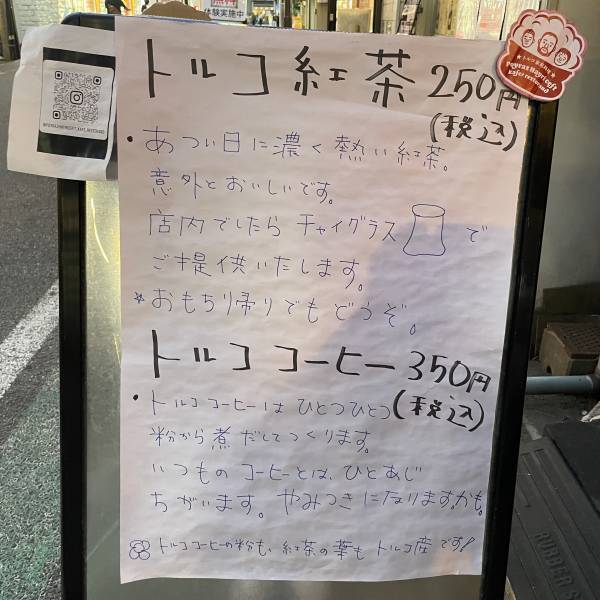 体験実施中
トルコ紅茶 250円
(税込)
・あつい日に濃く熱い紅茶。
意外とおいしいです。
店内でしたら チャイグラス で
ご提供いたします。
☆おもち帰りでもどうぞ。
トルココーヒー 350円
(税込)
・トルココーヒーは ひとつひとつ
粉から煮だしてつくります。
いつものコーヒーとは、ひとあじ
ちがいます。やみつきになります。かも。
トルココーヒーの粉も、紅茶の葉も トルコ産です!